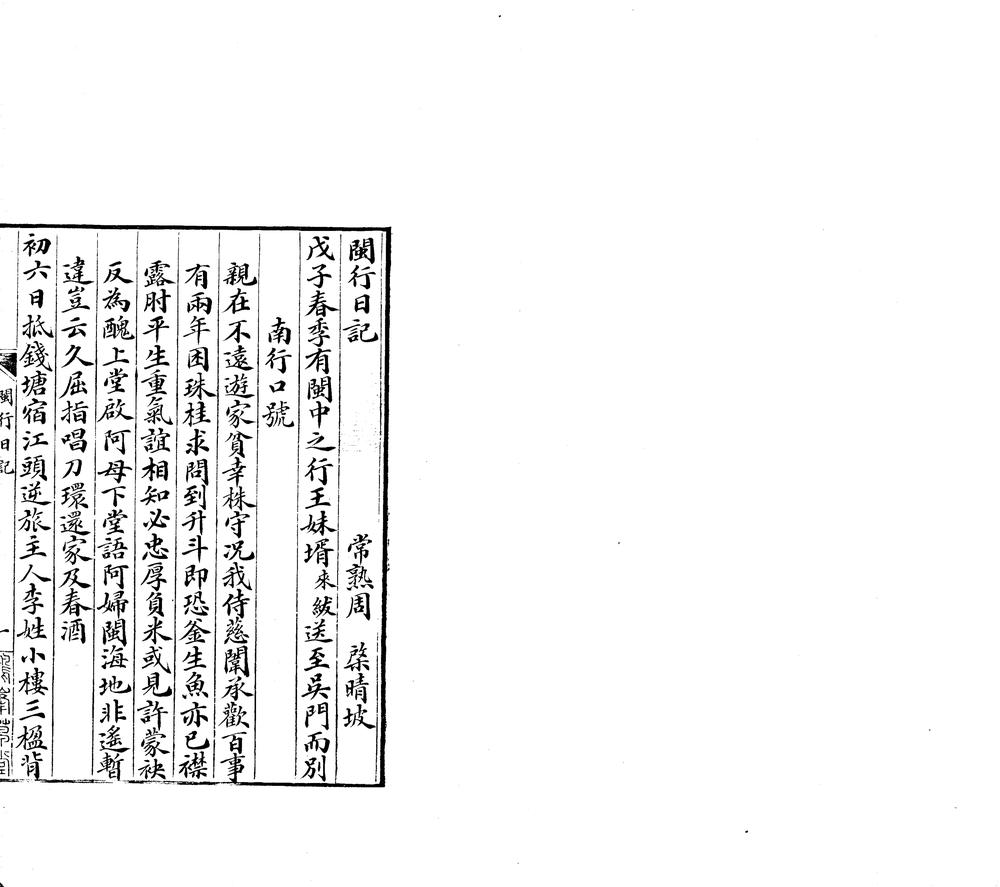 閩行日記
常熟周　棨晴坡
戊子春季有閩中之行王妹壻來紱送至吳門而別
南行口號
親在不遠遊家貧幸株守况我侍慈闈承歡百事
有兩年困珠桂求問到升斗即恐釜生魚亦已襟
露肘平生重氣誼相知必忠厚負米或見許蒙袂
反為醜上堂啟阿母下堂語阿婦閩海地非遙暫
違豈云久屈指唱刀環還家及春酒
初六日抵錢塘宿江頭逆旅主人李姓小樓三楹背
閩行日記
一